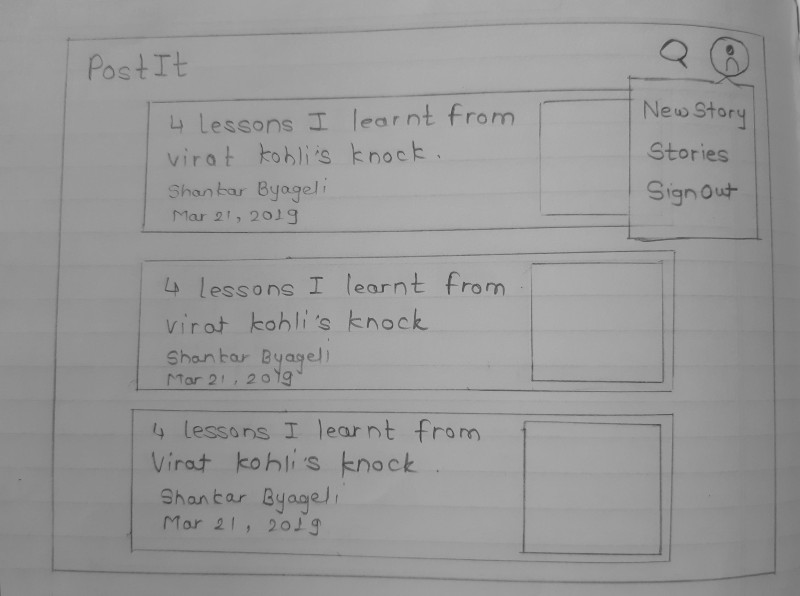 PostIt
New Story
Stories
Sign Out
4 lessons I learnt from
virat kohli's knock.
Shankar Byageli
Mar 21, 2019
4 lessons I learnt from
virat kohli's knock
Shankar Byageli
Mar 21, 2019
4 lessons I learnt from
Virat kohli's knock.
Shankar Byageli
Mar 21, 2019